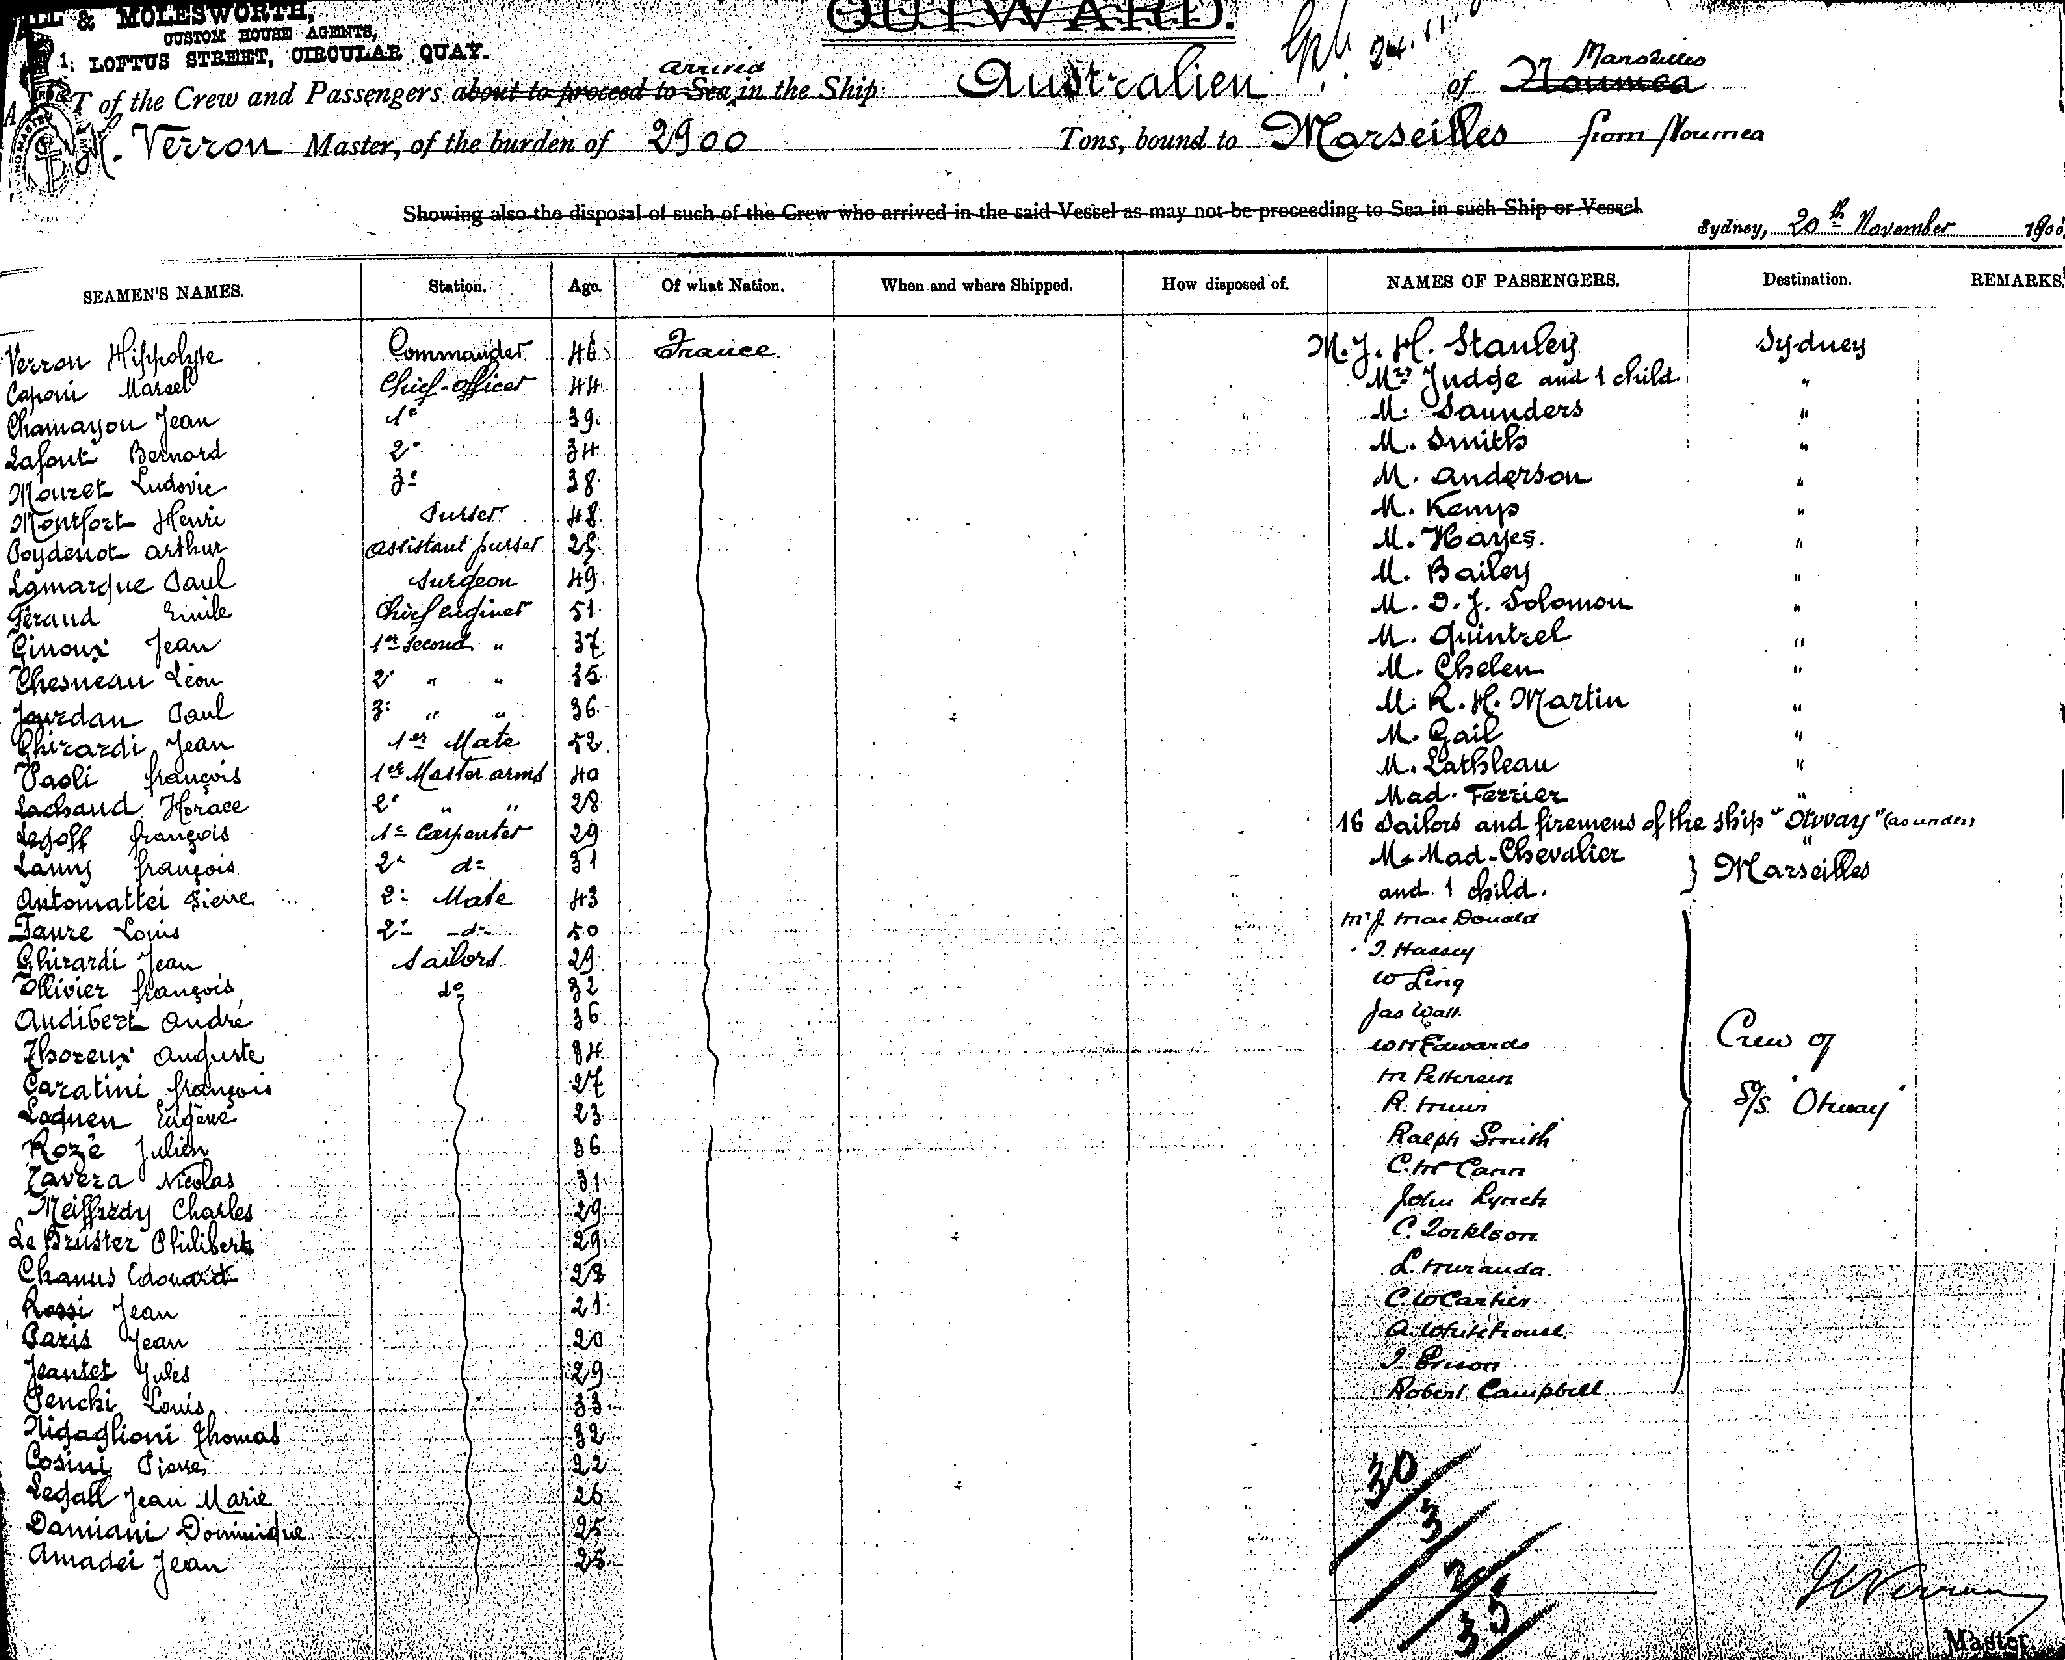 & MOLESWORTH,
CUSTOM HOUSE AGENTS,
1, LOFTUS STREET, CIRCULAR QUAY.
OUTWARD.
24.11
of the Crew and Passengers about to proceed to Sea arrived in the Ship Australien of Noumea Marseilles
H. Verron Master, of the burden of 2900 Tons, bound to Marseilles from Noumea
Showing also the disposal of such of the Crew who arrived in the said Vessel as may not be proceeding to Sea in such Ship or Vessel
Sydney, 20th November 1900
SEAMEN'S NAMES. Station. Age. Of what Nation. When and where Shipped. How disposed of. NAMES OF PASSENGERS. Destination. REMARKS
Verron Hippolyte Commander 46 France M. J. H. Stanley Sydney
Caponi Marcel Chief-officer 44 Mrs Judge and 1 child "
Chamayou Jean 1e 39 M. Saunders "
Lafont Bernard 2e 34 M. Smith "
Mouret Ludovic 3e 38 M. Anderson "
Montfort Henri Purser 48 M. Kemp "
Poydenot Arthur assistant purser M. Hayes "
Lamarque Paul Surgeon 49 M. Bailey "
Feraud Emile Chief enginer 51 M. D. J. Solomon "
Ginoux Jean 1er second " 37 M. Quintrel "
Chesneau Léon 2e " " 35 M. Chelen "
Jourdan Paul 3e " " 36 M. R. H. Martin "
Ghirardi Jean 1er Mate 52 M. Gail "
Paoli françois 1er Master arms 40 M. Lathleau "
Lachaud Horace 2e " " 28 Mad. Ferrier "
Legoff françois 1er Carpenter 29 16 Sailors and firemens of the ship "Otway" (as under) "
Lanny françois 2e do 31 M. Mad. Chevalier } Marseilles
Antomattei Pierre 2e Mate 43 and 1 child.
Faure Louis 2e do 50 Mr J. Mac Donald
Ghirardi Jean Sailors 29 T. Hassey
Ollivier françois do 32 W Ling
Audibert André 36 Jas Watt
Thoreux Auguste 34 W H Edwards Crew of
Caratini françois 27 M Pettersen
Loquen Eugène 23 R. S/S "Otway"
Rozé Julien 36 Ralph Smith
Tavera Nicolas 31 C. McCann
Meiffredy Charles 29 John Lynch
Le Bruster Philibert 29 C. Torklson
Chanus Edouard 28 L. Muranda
Rossi Jean 21 C W Carter
Paris Jean 20 A. Whitehouse
Jeantet Jules 29
Penchi Louis 33 Robert Campbell
Nigaglioni Thomas 32
Cosini Pierre 22 30
Legall Jean Marie 26 3
Damiani Dominique 25 2
Amadei Jean 25 35
H Verron
Master